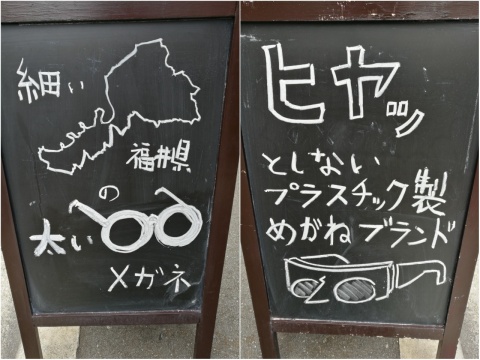 細い
福井県
の
太い
メガネ
ヒヤッ
としない
プラスチック製
めがねブランド